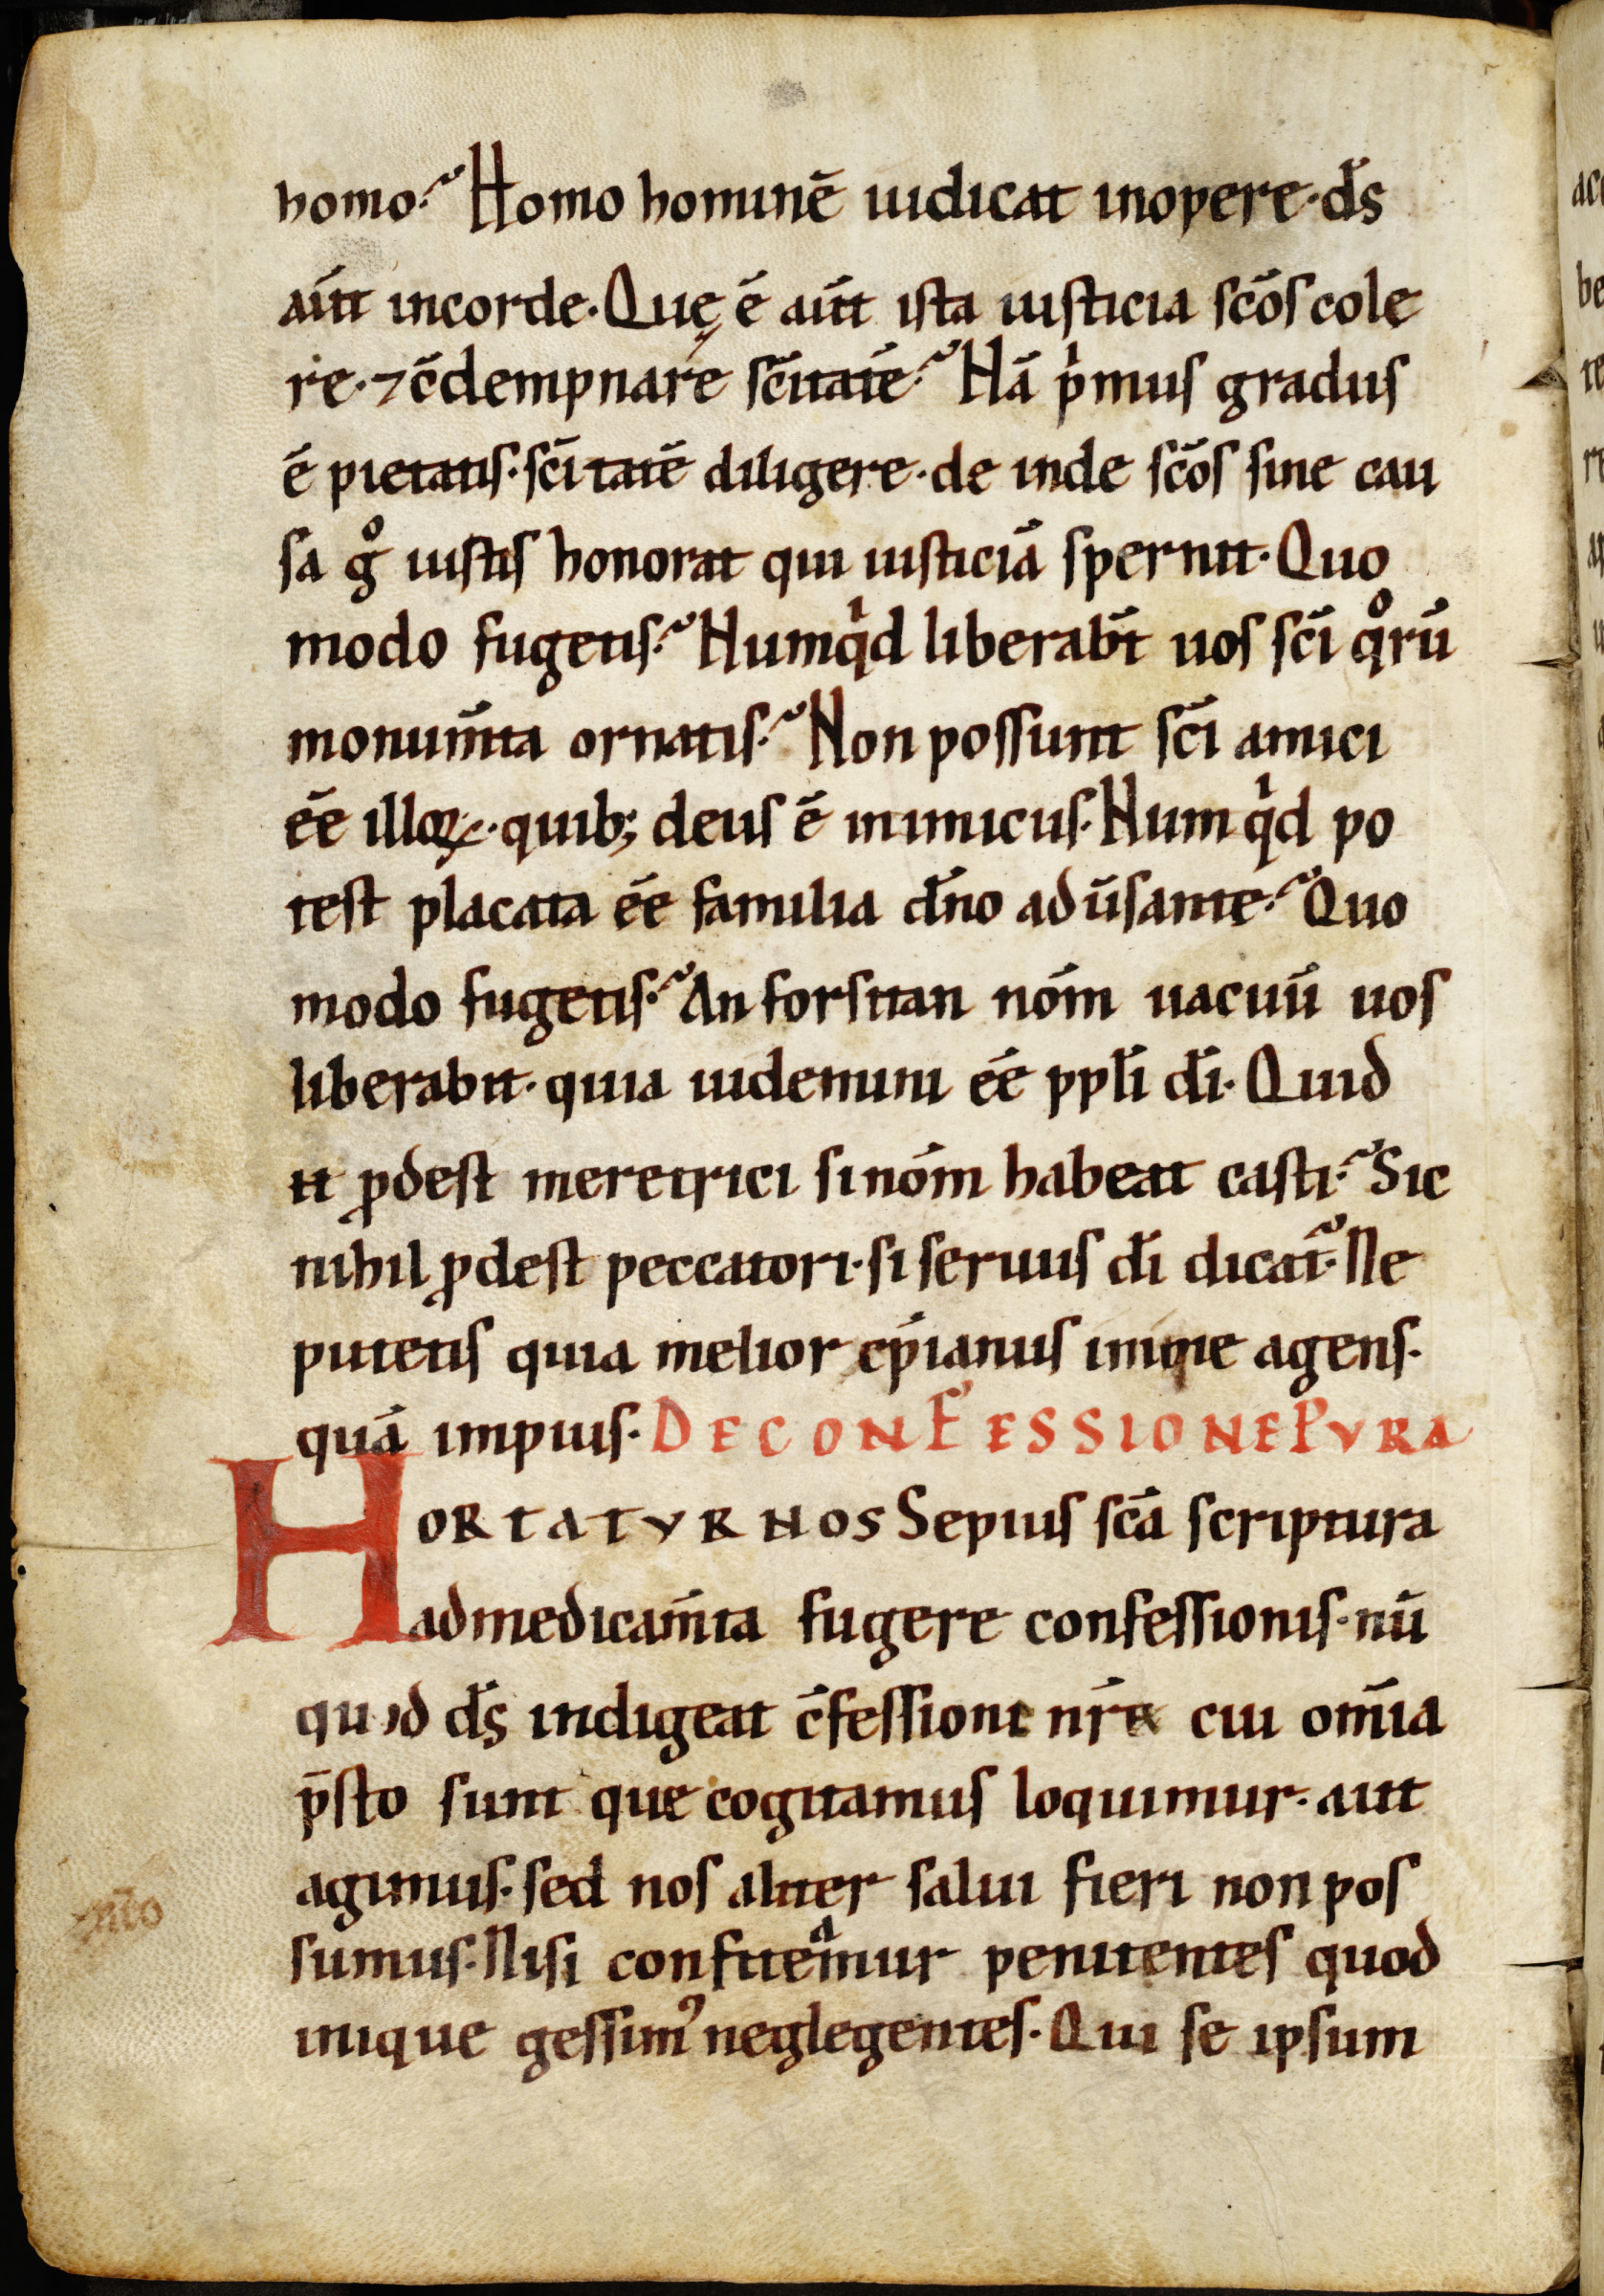 homo? Homo hominē iudicat inopere·d̄s
aūt incorde. Quę ē aūt ista iusticia sc̄os cole
re·⁊c̄dempnare sc̄itatē? Nā pͥmus gradus
ē pietatis·sc̄itatē diligere·de inde sc̄os sine cau
sa gͦ iustis honorat qui iusticiā spernit. Quo
modo fugetis? Numqͥd liberabt̄ uos sc̄i qͦrū
monum̄ta ornatis? Non possunt sc̄i amici
eē̄ illoꝝ·quib; deus ē inimicus. Numqͥd po
test placata eē̄ familia dn̄o adūsante? Quo
modo fugetis? An forsitan nōm uacuū uos
liberabit·quia uidemini eē̄ ppl̄i dī. Quid
tt ꝓdest meretrici si nōm habeat casti? Sic
nihil ꝓdest peccatori·si seruus dī dicat̄? Ne
putetis quia melior xp̄ianus inique agens.
quā impius. DECONFESSIONEPVRA
HORTATVR NOS Sepius sc̄a scriptura
admedicam̄ta fugere confessionis·nū
quod d̄s indigeat c̄fessione nr̄a cui om̄ia
p̄sto sunt que cogitamus loquimur·aut
agimus·sed nos aliter salui fieri non pos
sumus. Nisi confiteͣmur penitentes quod
inique gessim᾿ neglegentes. Qui se ipsum